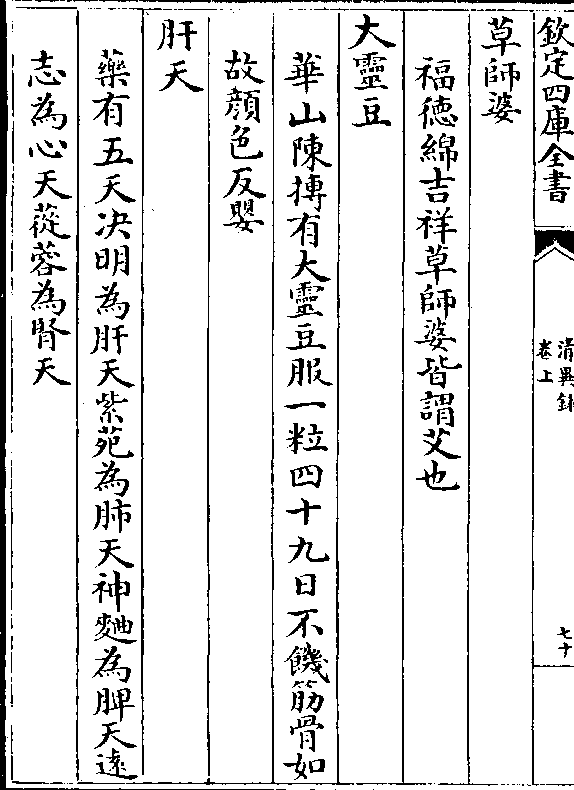 欽定四庫全書
清異錄
卷上
七十
草師婆
福徳綿吉祥草師婆皆謂艾也
大靈豆
華山陳摶有大靈豆服一粒四十九日不饑筋骨如
故顔色反嬰
肝天
藥有五天决明為肝天紫苑為肺天神麯為脾天逺
志為心天蓯蓉為腎天